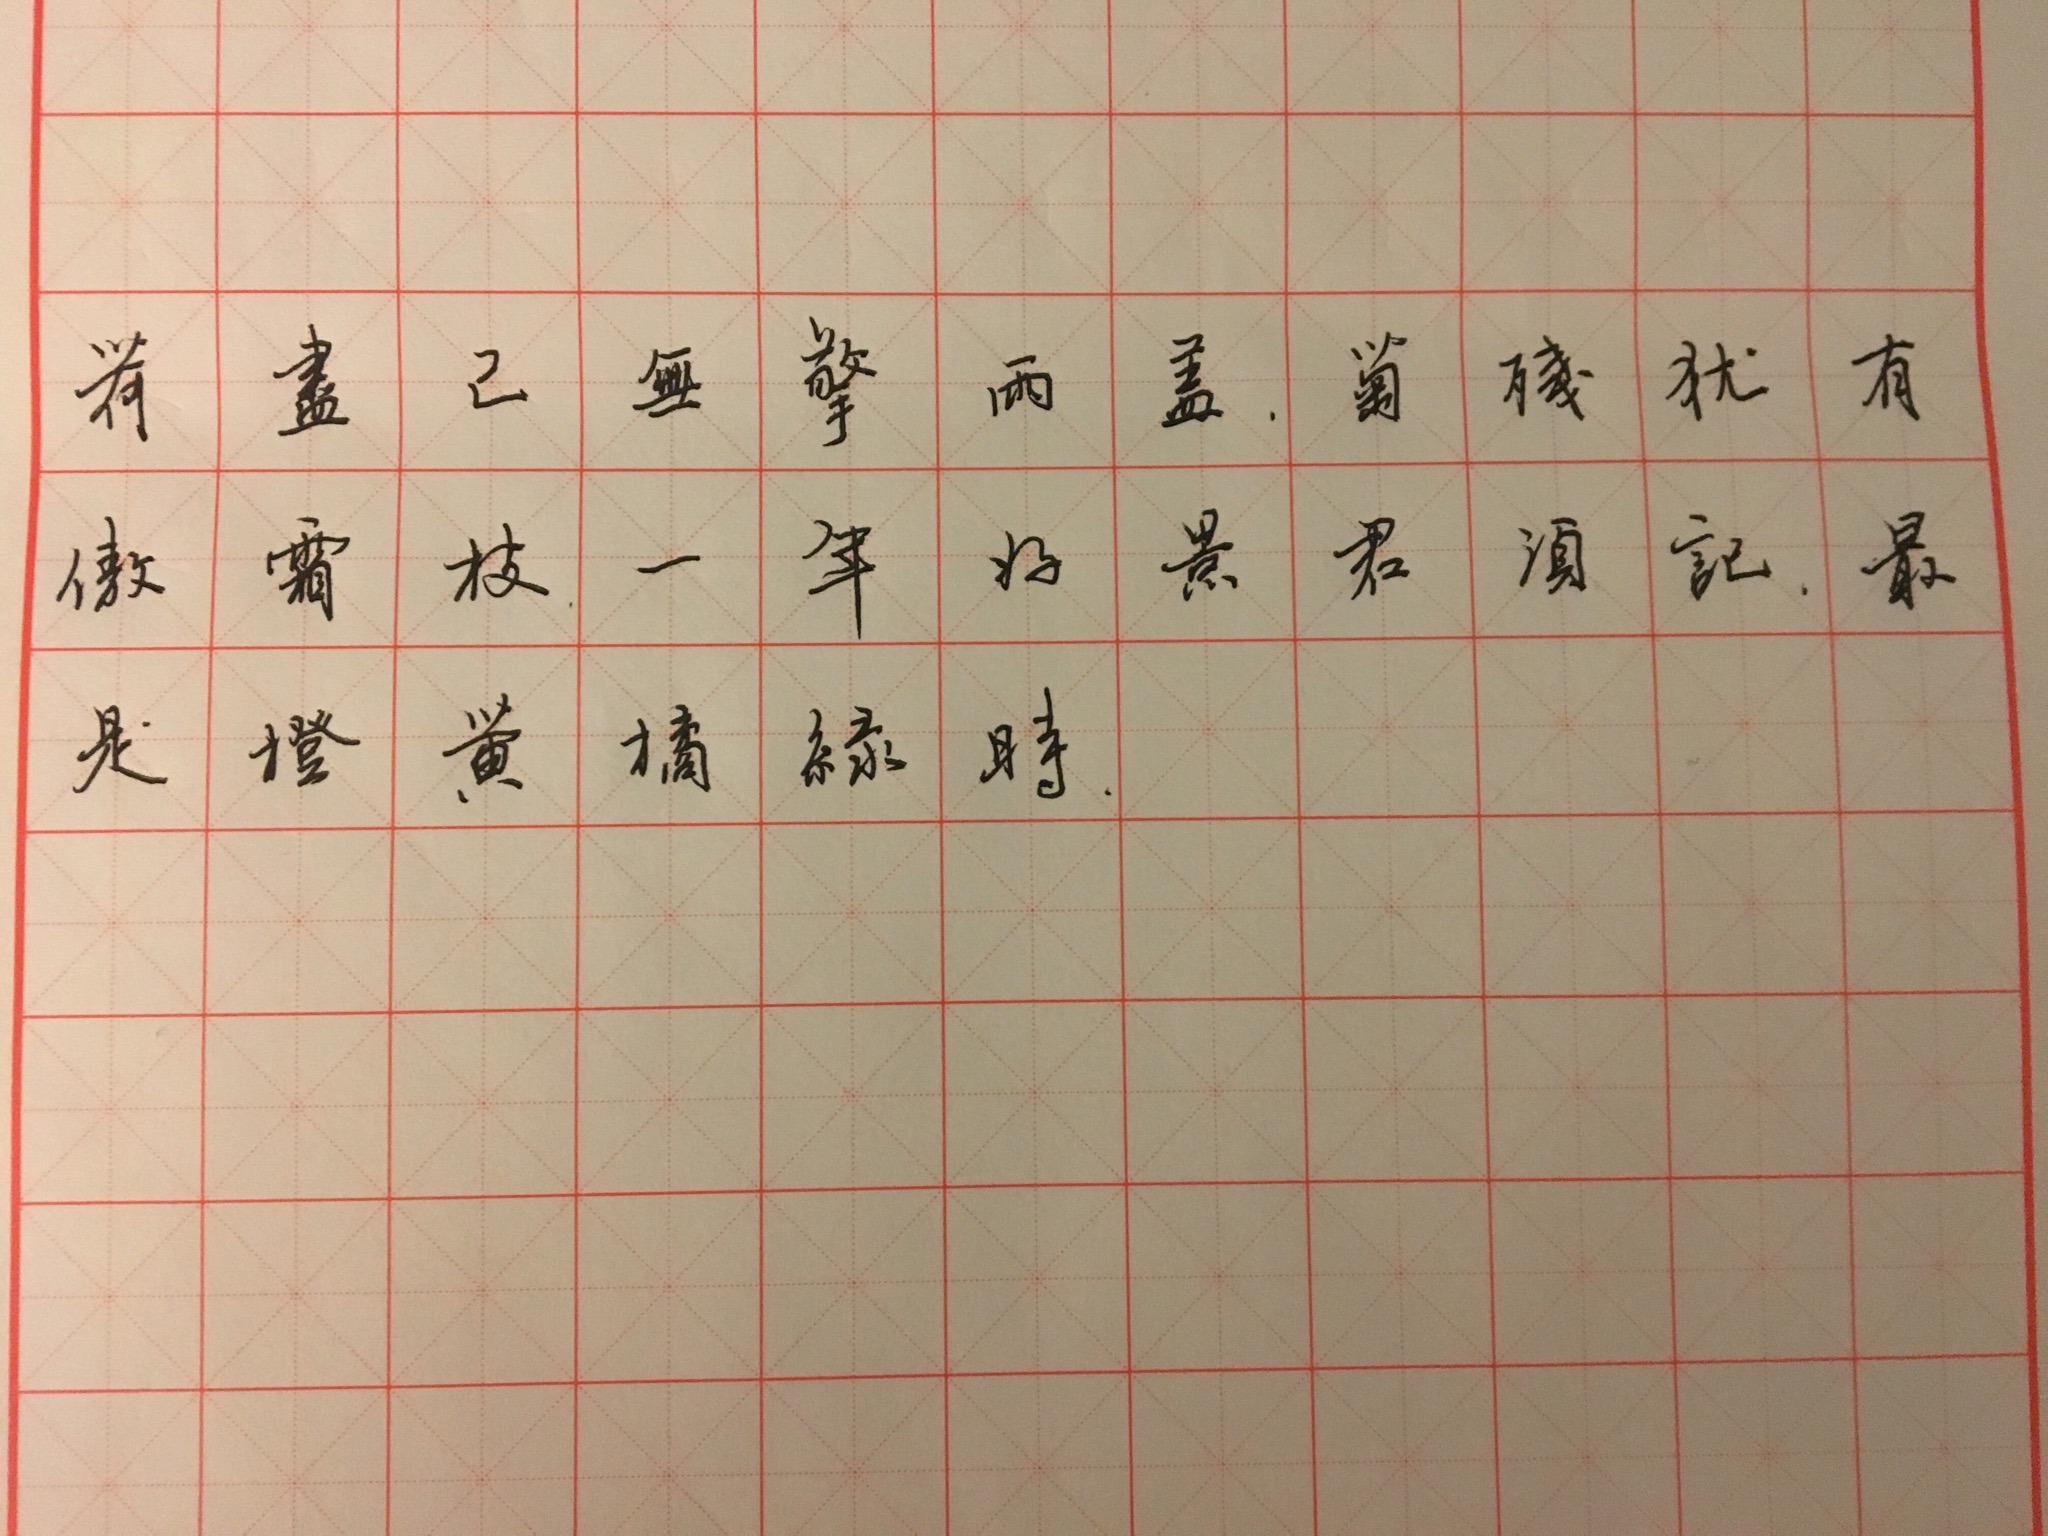 荷盡已無擎雨蓋.菊殘犹有
傲霜枝.一年好景君須記.最
是橙黄橘緑時.